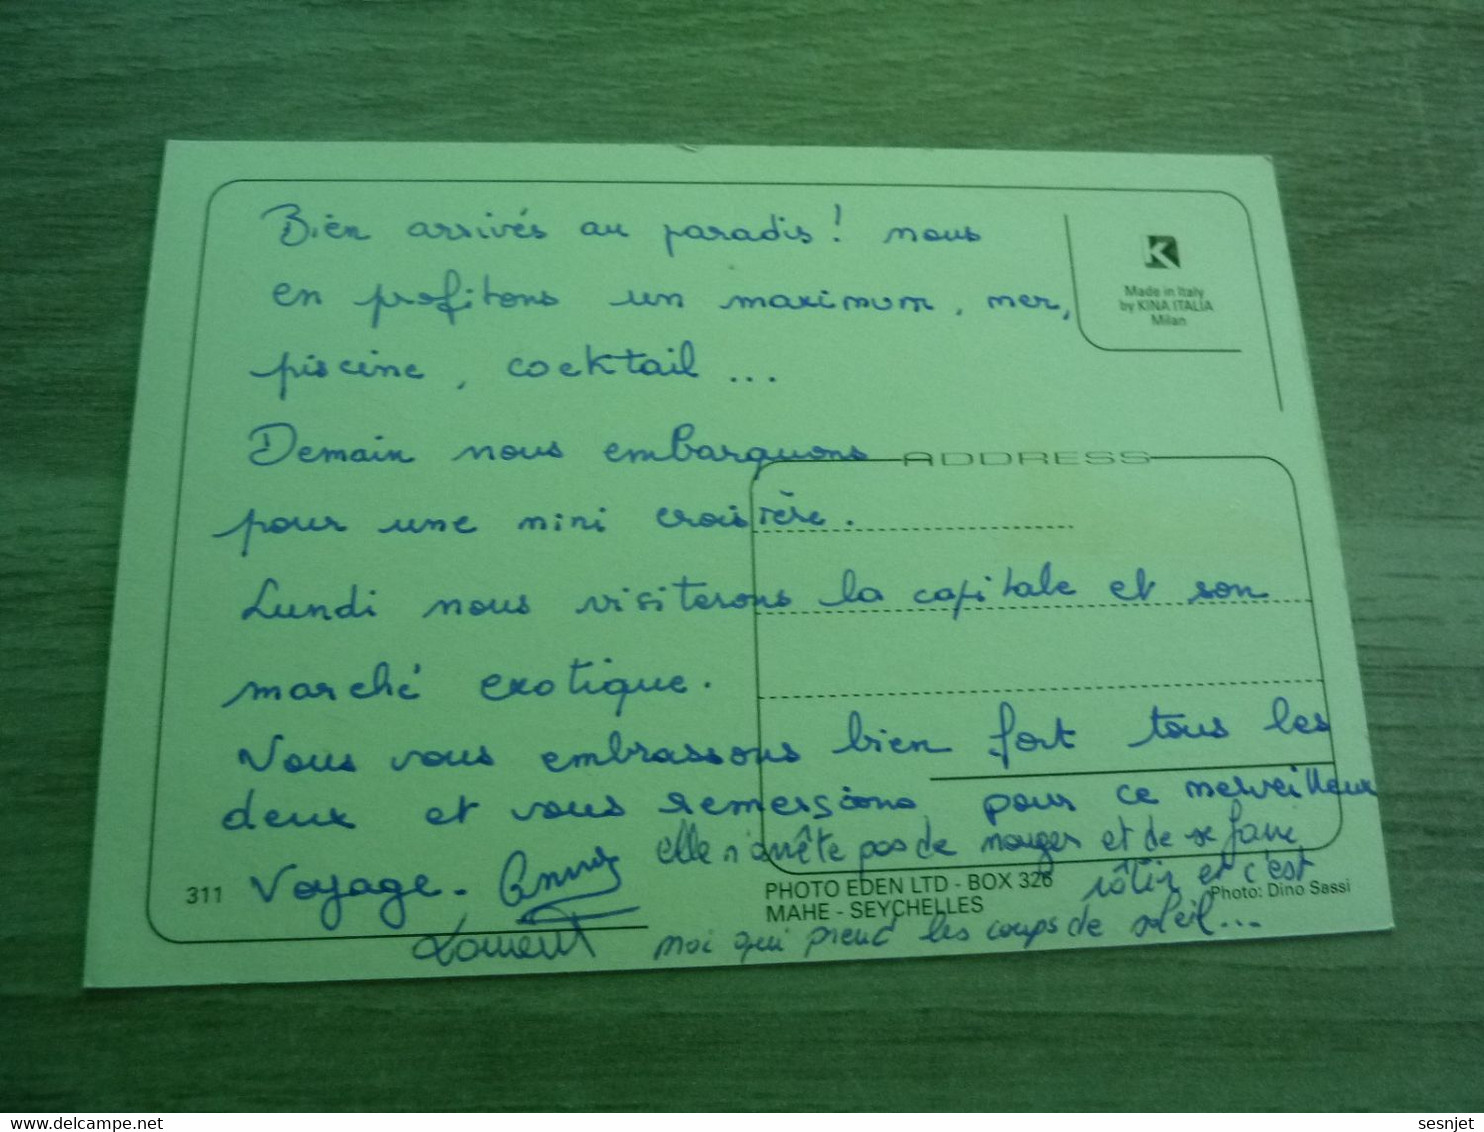 Bien arrivés au paradis ! nous
en profitons un maximum, mer,
piscine, cocktail ...
Demain nous embarquons
pour une mini croisière.
Lundi nous visiterons la capitale et son
marché exotique.
Nous vous embrassons bien fort tous les
deux et vous remercions pour ce merveilleux
voyage.
Laurent
elle n'arrête pas de nager et de se faire
rôtir et c'est
moi qui prend les coups de soleil...
K
Made in Italy
by KINA ITALIA
Milan
ADDRESS
311
PHOTO EDEN LTD - BOX 326
MAHE - SEYCHELLES
Photo: Dino Sassi
sesnjet